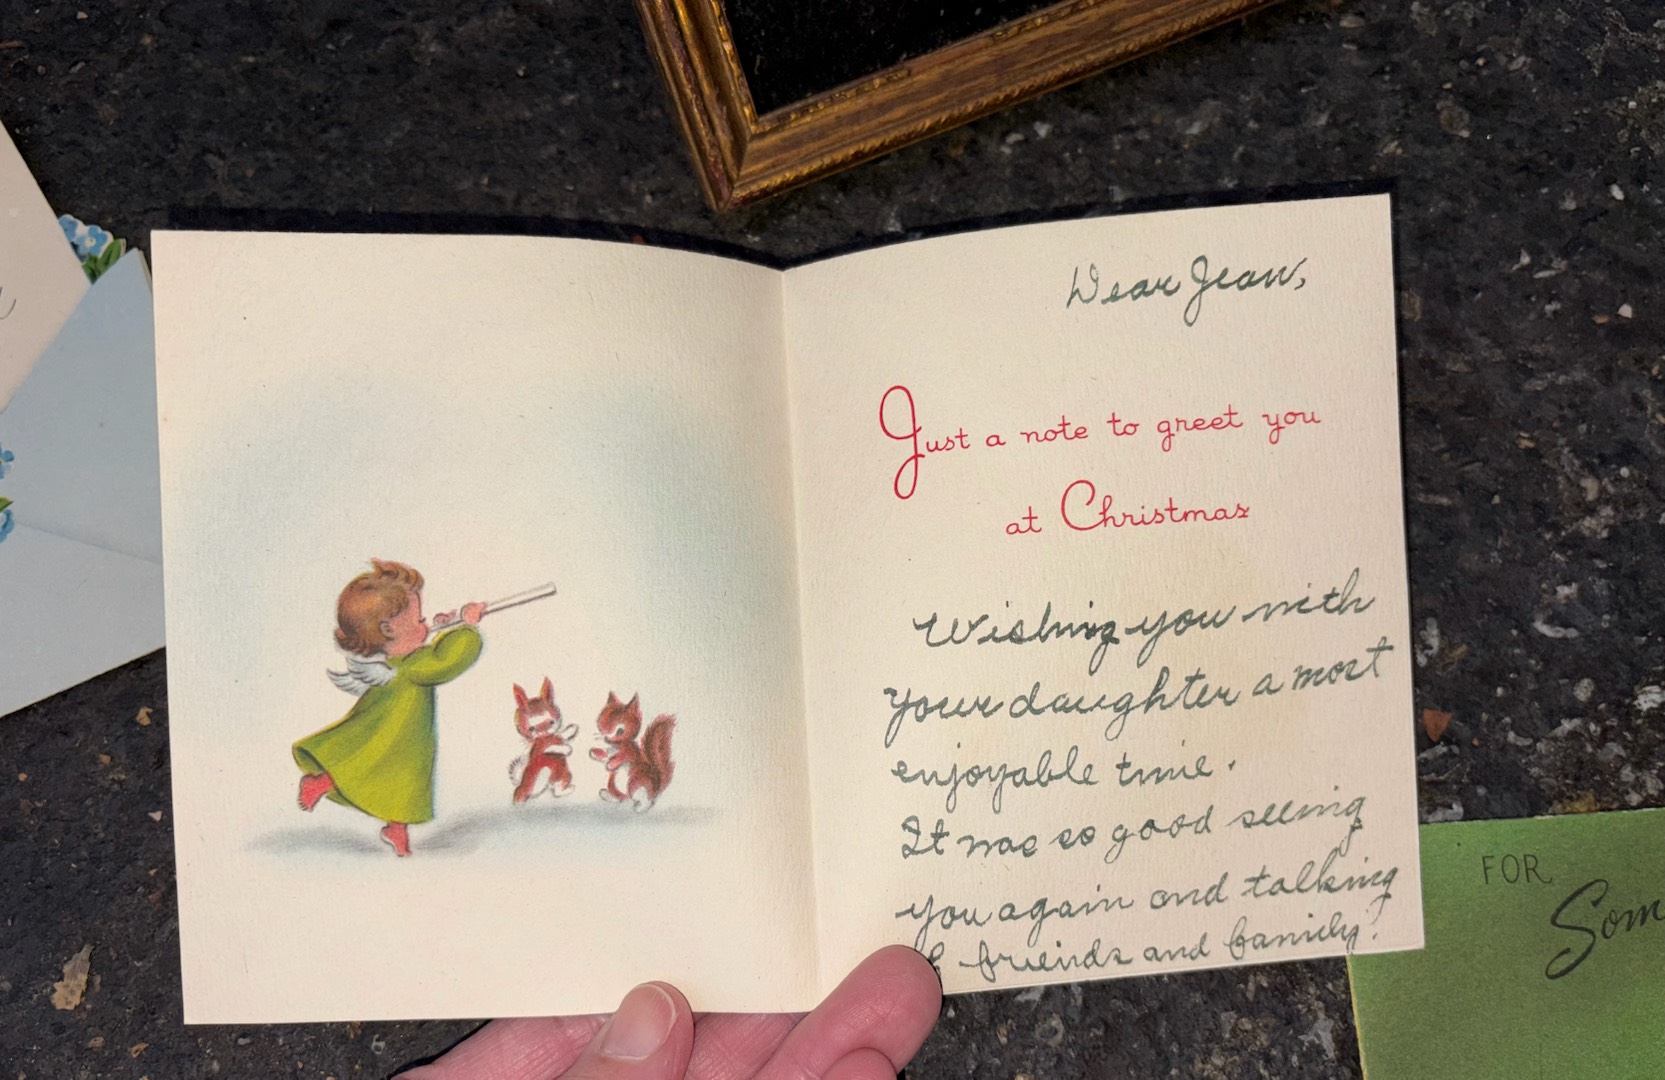 Dear Jean,
Just a note to greet you
at Christmas
Wishing you with
your daughter a most
enjoyable time.
It was so good seeing
you again and talking
friends and family!
FOR
Som